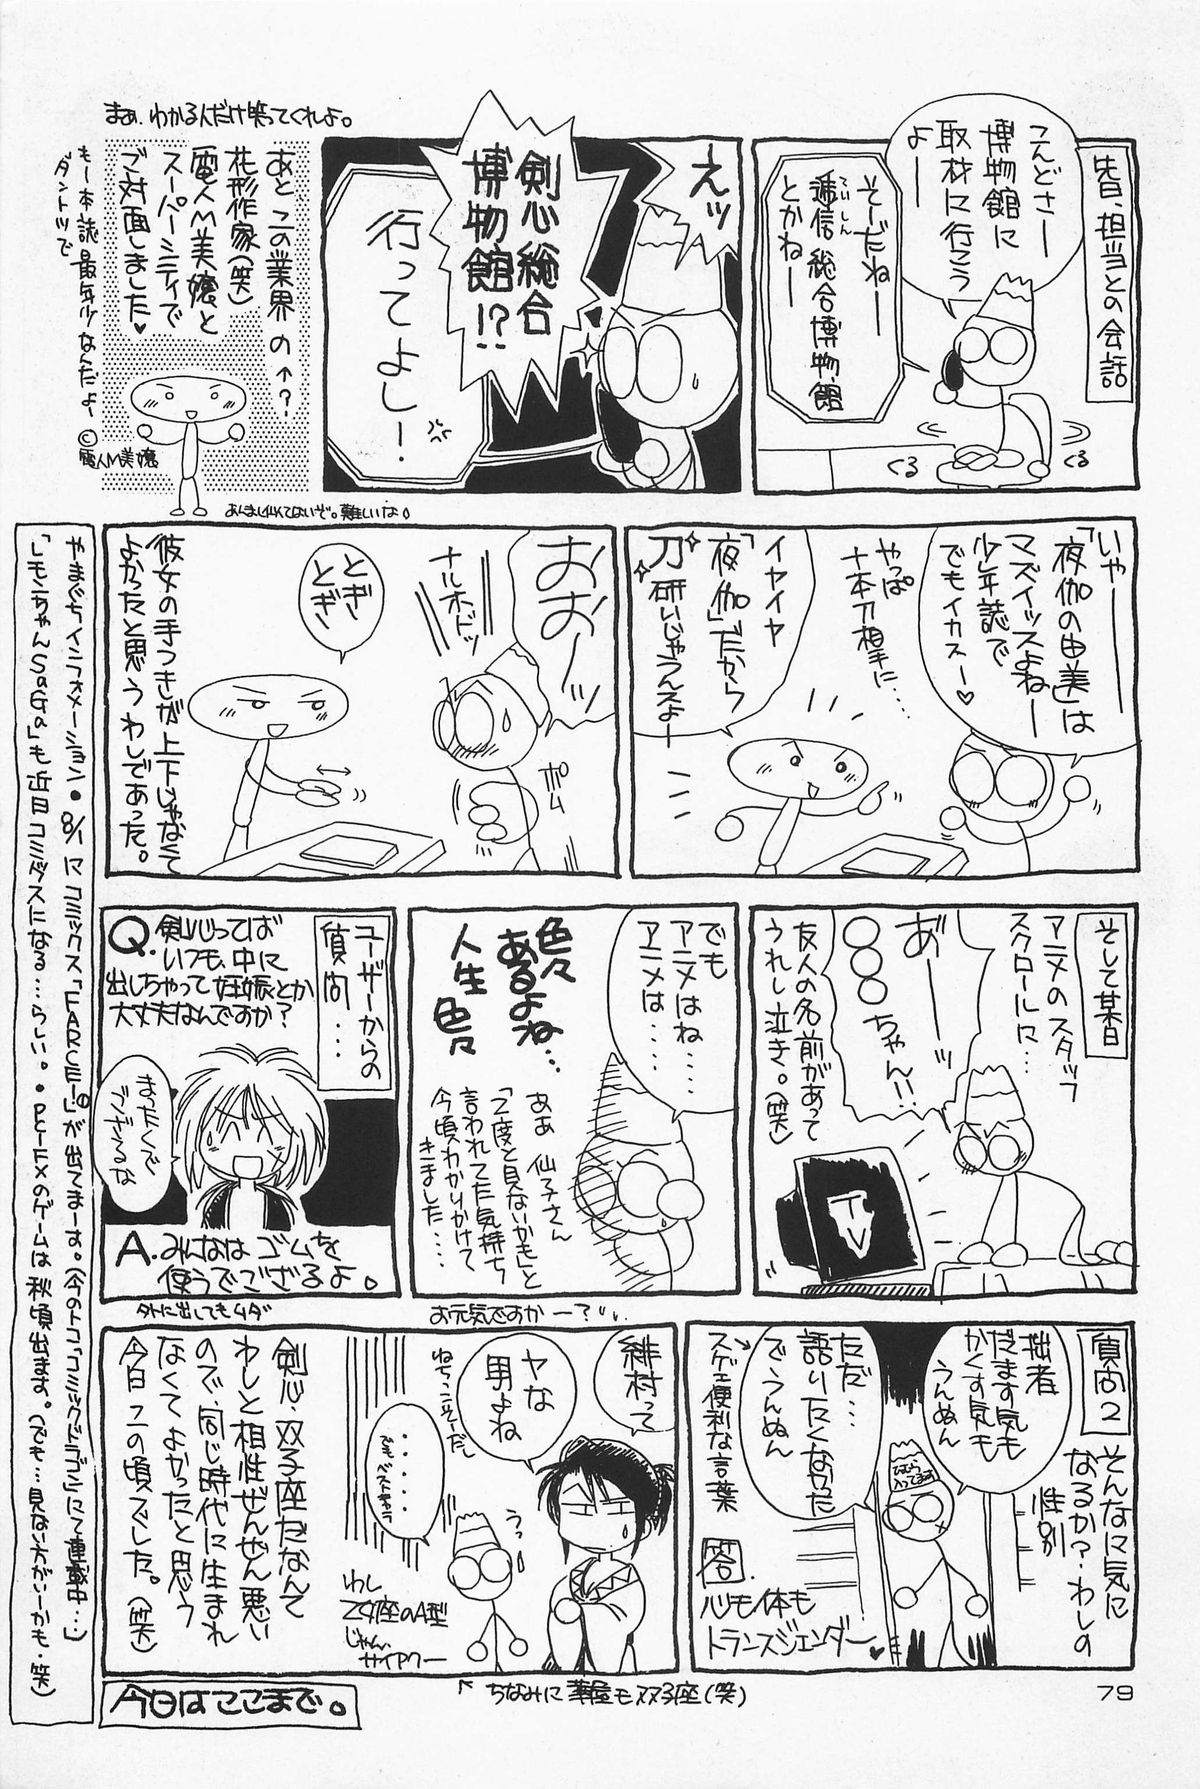 皆日、担当との会話
こんどさー
博物館に
取材に行こう
よー
そーだねー
逓信総合博物館
ていしん
とかねー
くる
くる
えッ
剣心総合
博物館!?
行ってよし!
まぁ、わかる人だけ笑ってくれよ。
あと この業界の↑?
花形作家(笑)
電人M美嬢と
スーパーシティで
ご対面しました♥
もー本誌最気少なんだよー
ダントツで
©電人M美嬢
あんまし似てないぞ。難しいな。
いやー
「夜伽の由美」は
マズイッスよねー
少年誌で
でもイカスー♥
やっぱ
十本刀相手に…
イヤイヤ
「夜伽」だから
刀研いじゃうんスよー
おおーッ
ナルホドッ
ポム
とぎ
とぎ
彼女の手つきが上下じゃなくて
よかったと思うわしであった。
そして某日
アニメのスタッフ
スクロールに…
あ゛ー
○○○ちゃん!!
友人の名前があって
うれし泣き。(笑)
TV
でも
アニメはね…
アニメは……
色々
あるよね…
人生
色々
ああ 仙子さん
「2度と見ないかも」と
言われてた気持ち
今頃わかりかけて
きました…
お元気ですかー?
ユーザーからの
質問…
Q.剣心ってば
いつも、中に
出しちゃって妊娠とか
大丈夫なんですか?
まったくで
ござるな
A.みんなは ゴムを
使うでござるよ。
外に出してもムダ
質問2
そんなに気に
なるか?わしの
性別
拙者
だます気も
かくす気も
うんぬん
ただ…
語りたくなかった
でうんぬん
スゲェ便利な言葉
ひむら
入ってます
答.
心も体も
トランスジェンダー♥
緋村って
ヤな
男よね
ねちっこそーだし
……
でもベストキャラ
うっ
わし
乙女座のA型
じゃん
サイアクー
剣心、双子座だなんて
わしと相性ぜんぜん悪い
ので、同じ時代に生まれ
なくてよかったと思う
今日この頃でした。(笑)
ちなみに薫殿も双子座(笑)
今日はここまで。
やまぐちインフォメーション●8/1にコミックス「FARCE!①」が出てまーす。(今のトコ「コミックドラゴン」にて連載中…)
「レモンちゃんSaGa」も近日コミックスになる……らしい。●PC-FXのゲームは秋頃出ます。(でも…見ない方がいーかも・笑)
79